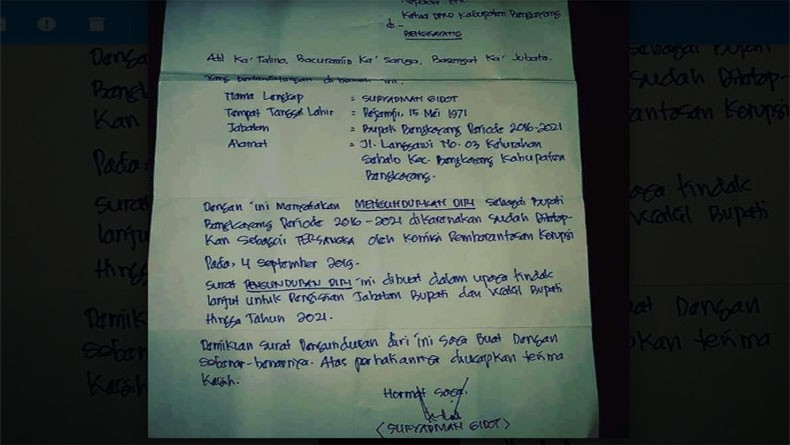 Ketua DPRD Kabupaten Bengkayang
di -
BENGKAYANG
Adil Ka' Talino, Bacuramin Ka' Saruga, Basengat Ka' Jubata.
Yang bertandatangan di bawah ini,
Nama Lengkap = SURYADMAN GIDOT
Tempat Tanggal Lahir = Rejangji, 15 Mei 1971
Jabatan = Bupati Bengkayang Periode 2016-2021
Alamat = Jl. Langsawi No. 03 Kelurahan
Sebalo Kec. Bengkayang Kabupaten
Bengkayang.
Dengan ini Menyatakan MENGUNDURKAN DIRI Sebagai Bupati
Bengkayang Periode 2016-2021 dikarenakan sudah Ditetap-
kan Sebagai TERSANGKA oleh Komisi Pemberantasan Korupsi
Pada, 4 September 2019.
Surat PENGUNDURAN DIRI ini dibuat dalam upaya tindak
lanjut untuk Pengisian Jabatan Bupati dan Wakil Bupati
Hingga Tahun 2021.
Demikian Surat Pengunduran diri ini saya Buat Dengan
sebenar-benarnya. Atas perhatiannya diucapkan terima
Kasih.
Hormat saya,
(SURYADMAN GIDOT)